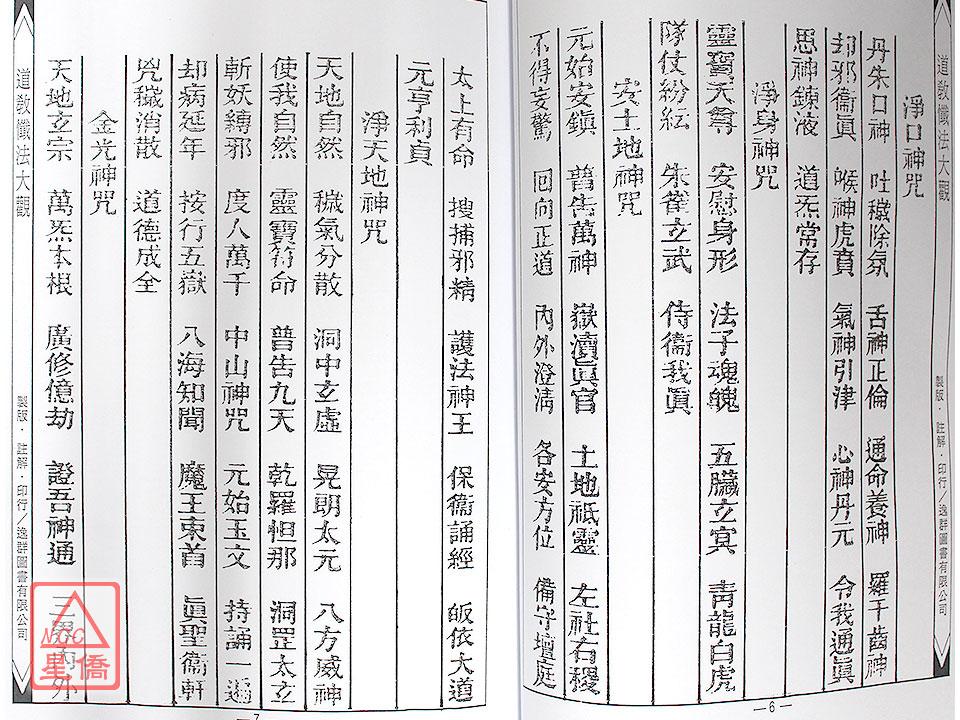 道教懺法大觀
製版．註解．印行／逸群圖書有限公司
淨口神咒
丹朱口神　吐穢除氛　舌神正倫　通命養神　羅千齒神
却邪衞眞　喉神虎賁　氣神引津　心神丹元　令我通眞
思神鍊液　道炁常存
淨身神咒
靈寶天尊　安慰身形　法子魂魄　五臟玄冥　青龍白虎
隊仗紛紜　朱雀玄武　侍衞我眞
安土地神咒
元始安鎮　普告萬神　嶽瀆眞官　土地祇靈　左社右稷
不得妄驚　回向正道　內外澄清　各安方位　備守壇庭
—6—
太上有命　搜捕邪精　護法神王　保衞誦經　皈依大道
元亨利貞
淨天地神咒
天地自然　穢氣分散　洞中玄虛　晃朗太元　八方威神
使我自然　靈寶符命　普告九天　乾羅怛那　洞罡太玄
斬妖縛邪　度人萬千　中山神咒　元始玉文　持誦一遍
却病延年　按行五嶽　八海知聞　魔王束首　眞聖衞軒
兇穢消散　道德成全
金光神咒
天地玄宗　萬炁本根　廣修億劫　證吾神通　三界內外
道教懺法大觀
製版．註解．印行／逸群圖書有限公司
—7—
NCC
星僑